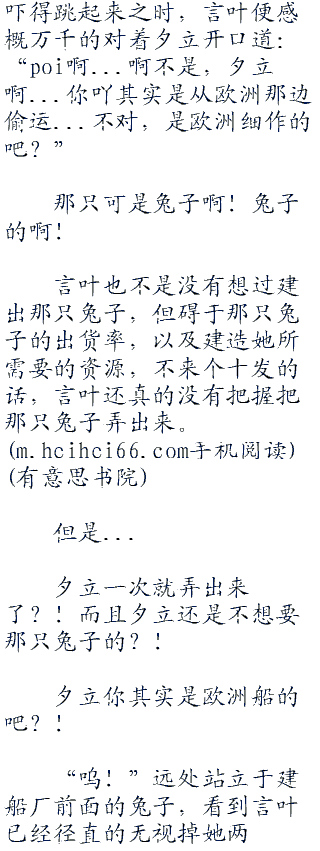 吓得跳起来之时，言叶便感
概万千的对着夕立开口道：
“poi啊...啊不是，夕立
啊...你吖其实是从欧洲那边
偷运...不对，是欧洲细作的
吧？”
那只可是兔子啊！兔子
的啊！
言叶也不是没有想过建
出那只兔子，但碍于那只兔
子的出货率，以及建造她所
需要的资源，不来个十发的
话，言叶还真的没有把握把
那只兔子弄出来。
(m.hcihci66.com手机阅读)
(有意思书院)
但是...
夕立一次就弄出来
了？！而且夕立还是不想要
那只兔子的？！
夕立你其实是欧洲船的
吧？！
“呜！”远处站立于建
船厂前面的兔子，看到言叶
已经径直的无视掉她两